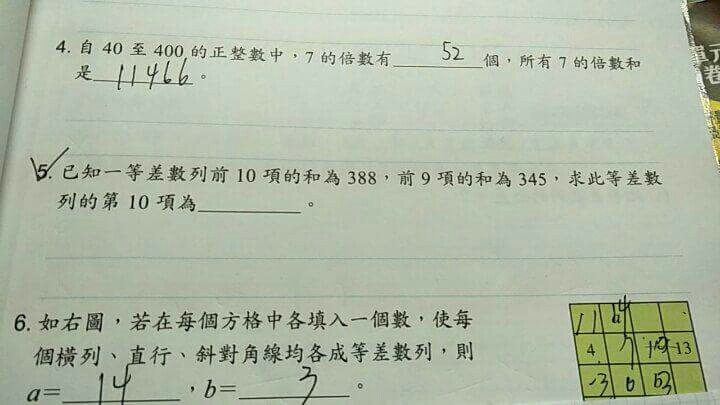 4. 自 40 至 400 的正整數中，7 的倍數有 52 個，所有 7 的倍數和
是 11466 。
5. 已知一等差數列前 10 項的和為 388，前 9 項的和為 345，求此等差數
列的第 10 項為 。
6. 如右圖，若在每個方格中各填入一個數，使每
個橫列、直行、斜對角線均各成等差數列，則
a= 14 ，b= 3 。
11
4 7 13
-3